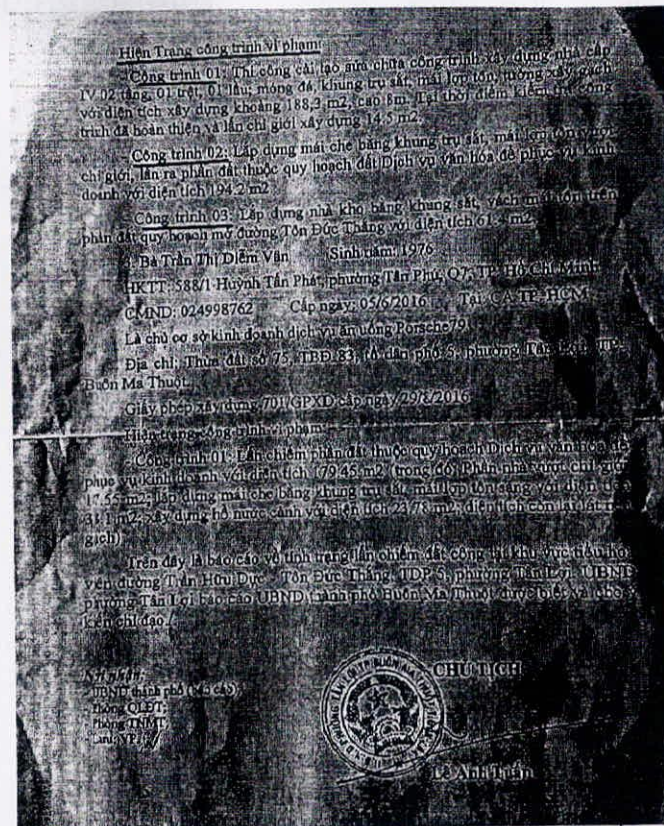 Hiện Trạng công trình vi phạm:
- Công trình 01: Thi công cải tạo sửa chữa công trình xây dựng nhà cấp
IV 02 tầng, 01 trệt, 01 lầu; móng đá, khung trụ sắt, mái lợp tôn, tường xây gạch
với diện tích xây dựng khoảng 188,3 m2, cao 8m. Tại thời điểm kiểm tra công
trình đã hoàn thiện và lấn chỉ giới xây dựng 14,5 m2.
- Công trình 02: Lắp dựng mái che bằng khung trụ sắt, mái lợp tôn vượt
chỉ giới, lấn ra phần đất thuộc quy hoạch đất Dịch vụ văn hóa để phục vụ kinh
doanh với diện tích 194,2 m2
- Công trình 03: Lắp dựng nhà kho bằng khung sắt, vách mái tôn trên
phần đất quy hoạch mở đường Tôn Đức Thắng với diện tích 61,4 m2
Bà Trần Thị Diễm Vân Sinh năm: 1976
HKTT: 588/1 Huỳnh Tấn Phát, phường Tân Phú, Q7, TP Hồ Chí Minh
CMND: 024998762 Cấp ngày: 05/6/2016 Tại: CA TP HCM
Là chủ cơ sở kinh doanh dịch vụ ăn uống Porsche79
Địa chỉ: Thửa đất số 75, TBĐ 83, tổ dân phố 5, phường Tân Lợi, TP.
Buôn Ma Thuột.
Giấy phép xây dựng 701/GPXD cấp ngày 29/8/2016
Hiện trạng công trình vi phạm:
- Công trình 01: Lấn chiếm phần đất thuộc quy hoạch Dịch vụ văn hóa để
phục vụ kinh doanh với diện tích 179,45 m2 (trong đó: Phần nhà vượt chỉ giới
17,55 m2; lắp dựng mái che bằng khung trụ sắt, mái lợp tôn sáng với diện tích
31,1 m2; xây dựng hồ nước cảnh với diện tích 23,78 m2; diện tích còn lại lát
gạch)
Trên đây là báo cáo về tình trạng lấn chiếm đất công tại khu vực tiểu hoa
viên đường Trần Hữu Dực - Tôn Đức Thắng, TDP 5, phường Tân Lợi. UBND
phường Tân Lợi báo cáo UBND thành phố Buôn Ma Thuột được biết và cho ý
kiến chỉ đạo./.
Nơi nhận:
- UBND thành phố (báo cáo)
- Phòng QLĐT;
- Phòng TNMT;
- Lưu: VP.
CHỦ TỊCH
Lê Anh Tuấn